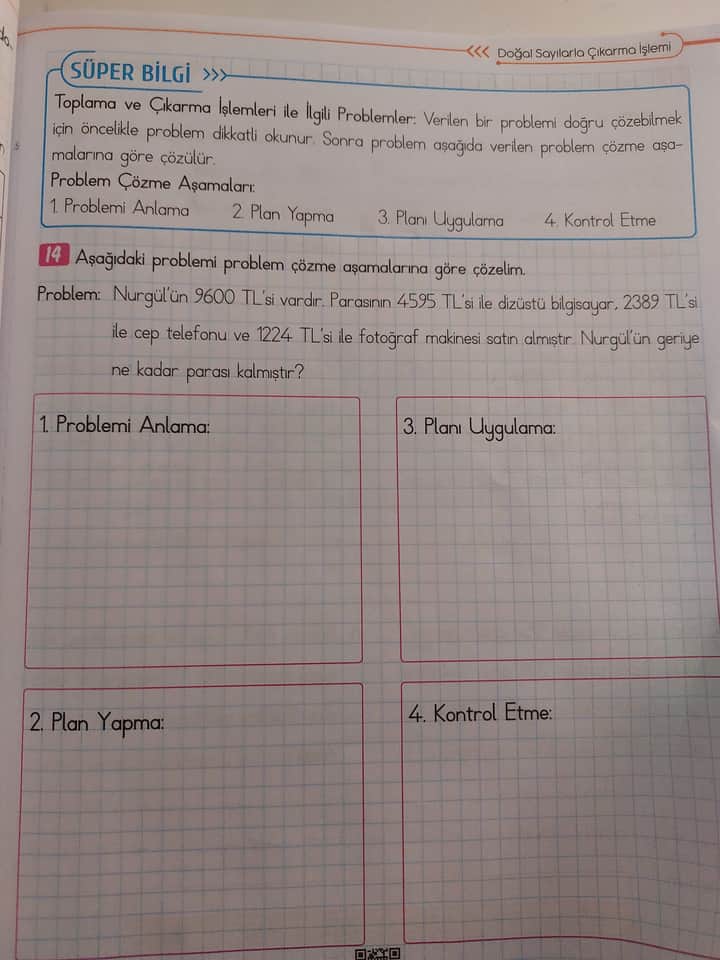 Doğal Sayılarla Çıkarma İşlemi
SÜPER BİLGİ
Toplama ve Çıkarma İşlemleri ile İlgili Problemler: Verilen bir problemi doğru çözebilmek
için öncelikle problem dikkatli okunur. Sonra problem aşağıda verilen problem çözme aşa-
malarına göre çözülür.
Problem Çözme Aşamaları:
1. Problemi Anlama 2. Plan Yapma 3. Planı Uygulama 4. Kontrol Etme
14 Aşağıdaki problemi problem çözme aşamalarına göre çözelim.
Problem: Nurgül'ün 9600 TL'si vardır. Parasının 4595 TL'si ile dizüstü bilgisayar, 2389 TL'si
ile cep telefonu ve 1224 TL'si ile fotoğraf makinesi satın almıştır. Nurgül'ün geriye
ne kadar parası kalmıştır?
1. Problemi Anlama:
3. Planı Uygulama:
2. Plan Yapma:
4. Kontrol Etme: